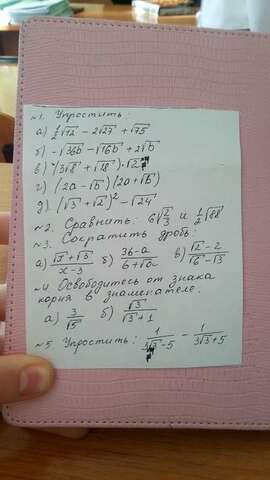 ~1. Упростить:
а) ½√12 – 2√27 + √75
б) -√36b – √16b + 2√b
в) (3√8 + √18)·√2
г) (2a – √b)(2a + √b)
д) (√3 + √2)² – √24
~2. Сравнить: 6√⅔ и ½√88
~3. Сократить дробь:
а) (√x + √3)/(x – 3) б) (36 – a)/(6 + √a) в) (√2 – 2)/(√6 – √3)
~4 Освободитесь от знака
корня в знаменателе:
а) 3/√5 б) √3/(√3 + 1)
~5 Упростить: 1/(3√3 – 5) – 1/(3√3 + 5)